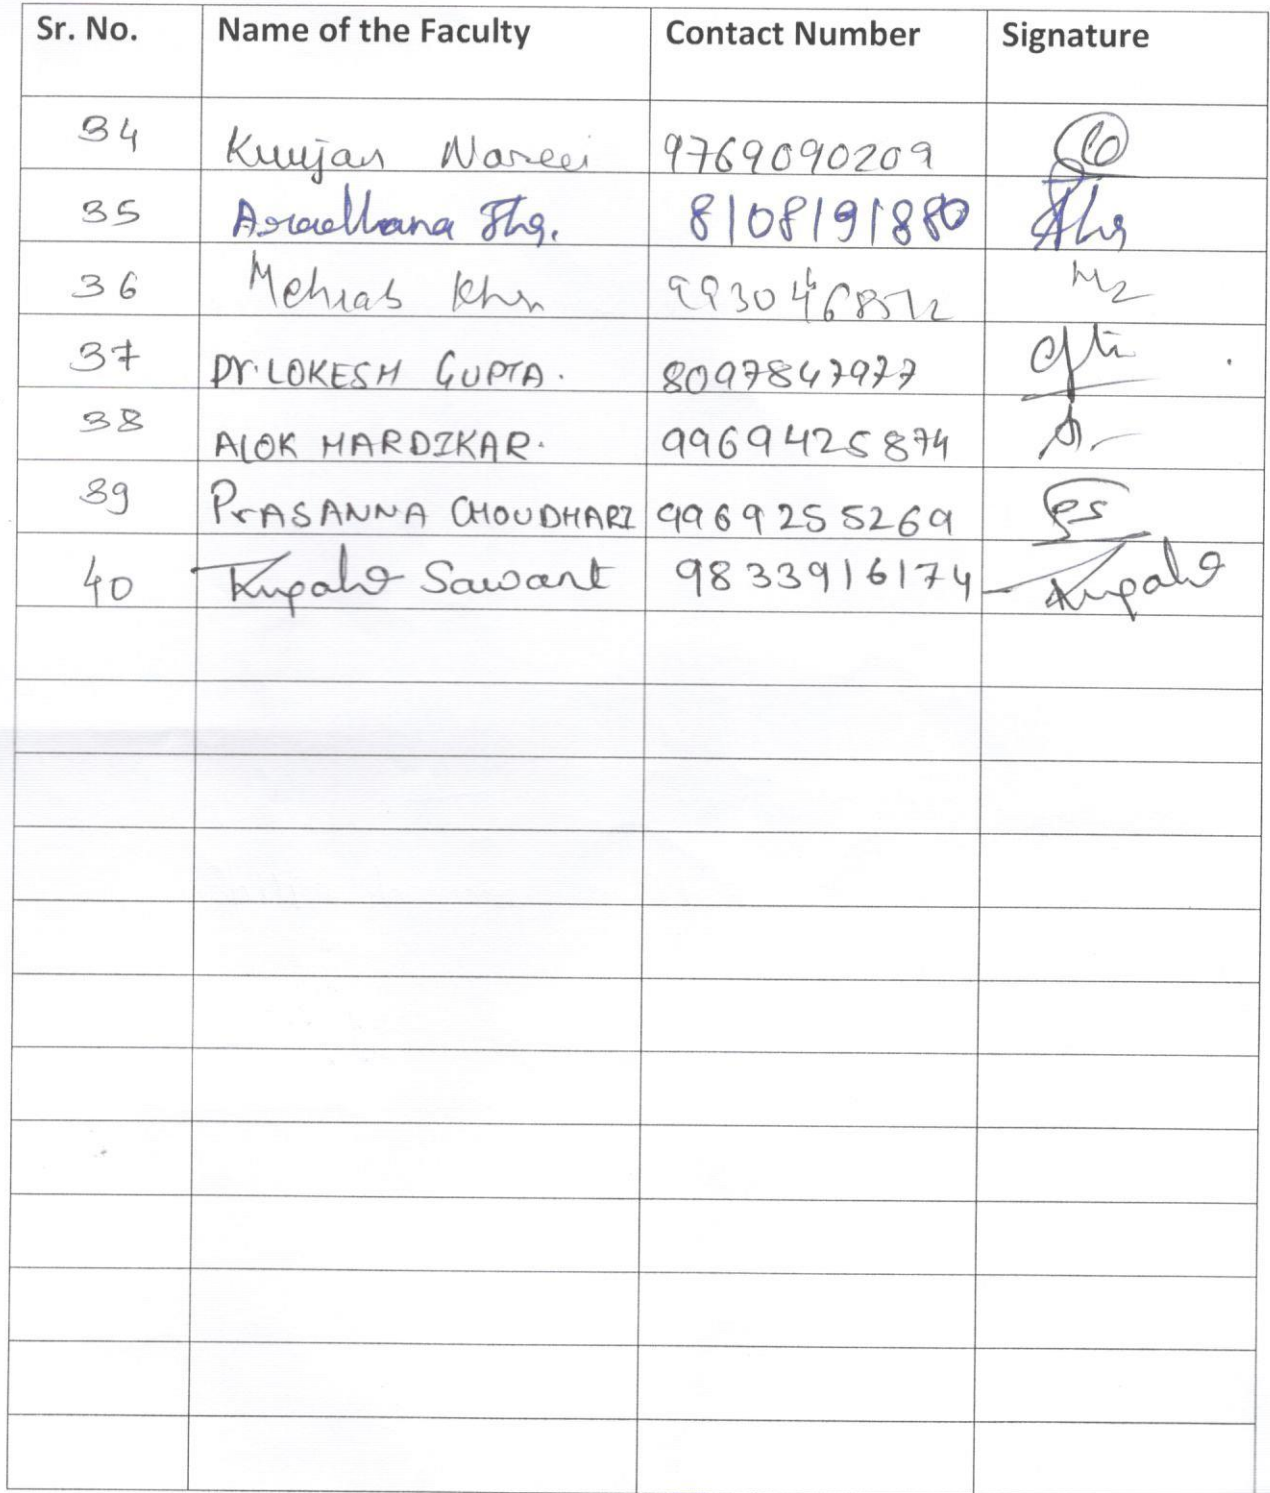 Sr. No. Name of the Faculty Contact Number Signature
34 Kunjan 9769090209
35 Aradhana 8108191880
36 Mehrab Khan
37 Dr. LOKESH GUPTA. 8097847977
38 ALOK HARDIKAR. 9969425874
39 PrASANNA CHOUDHARI 9969255269
40 Krupali Sawant 9833916174 Krupali